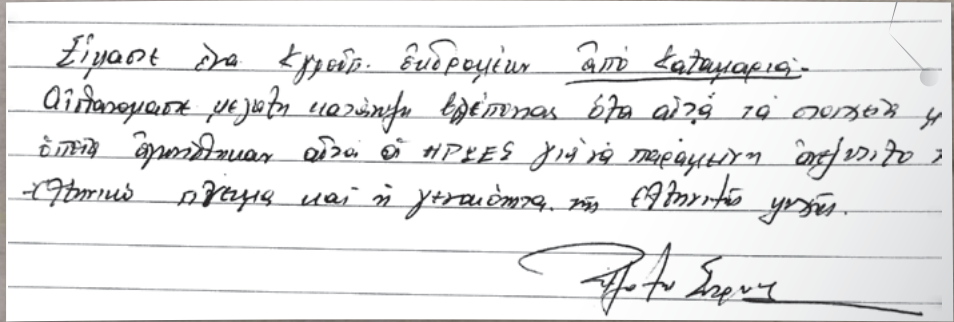 Εἴμαστε ἕνα γκρούπ ἐκδρομέων ἀπό Καλαμαριά.
Αἰσθανόμαστε μεγάλη κατάπληξη βλέποντας ὅλα αὐτά τά στοιχεῖα
ὁποῖα αὐτοί οἱ ΗΡΩΕΣ γιά νά παραμείνη ἄσβυστο
Ἑλληνικό πνεῦμα καί ἡ γενναιότητα τῆς Ἑλληνικῆς ψυχῆς.